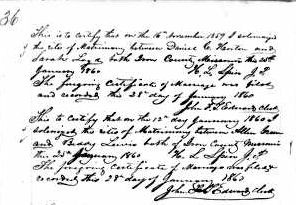 36
This is to certify that on the 16th November 1859 I solemnized
the rites of Matrimony between Daniel C. Horton and
Sarah both Iron County Missouri this 25th
January 1860 H. L. J.P.
The foregoing Certificate of Marriage was filed
and recorded this 28th day of January 1860
John F. Edwards Clerk
This to Certify that on the 12th day January 1860 I
solemnized the rites of Matrimony between Allen Green
and Lewis both of Iron County Missouri
this 25 January 1860 H. L. J.P.
The foregoing certificate of Marriage was filed &
recorded this 28 day of January 1860
John F. Edwards Clerk